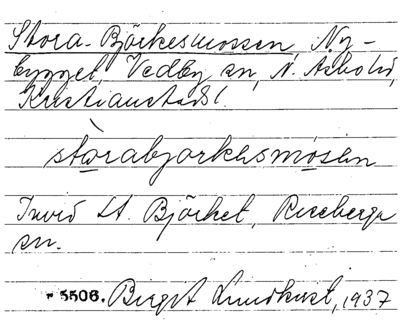 Stora-Björkesmossen, Ny-
bygget, Vedby sn, N. Åsbo hd,
Kristianstads l.
stòrabjorkesmosen
Invid St. Björket, Riseberga
sn.
5506. Birgit Lundkvist, 1937